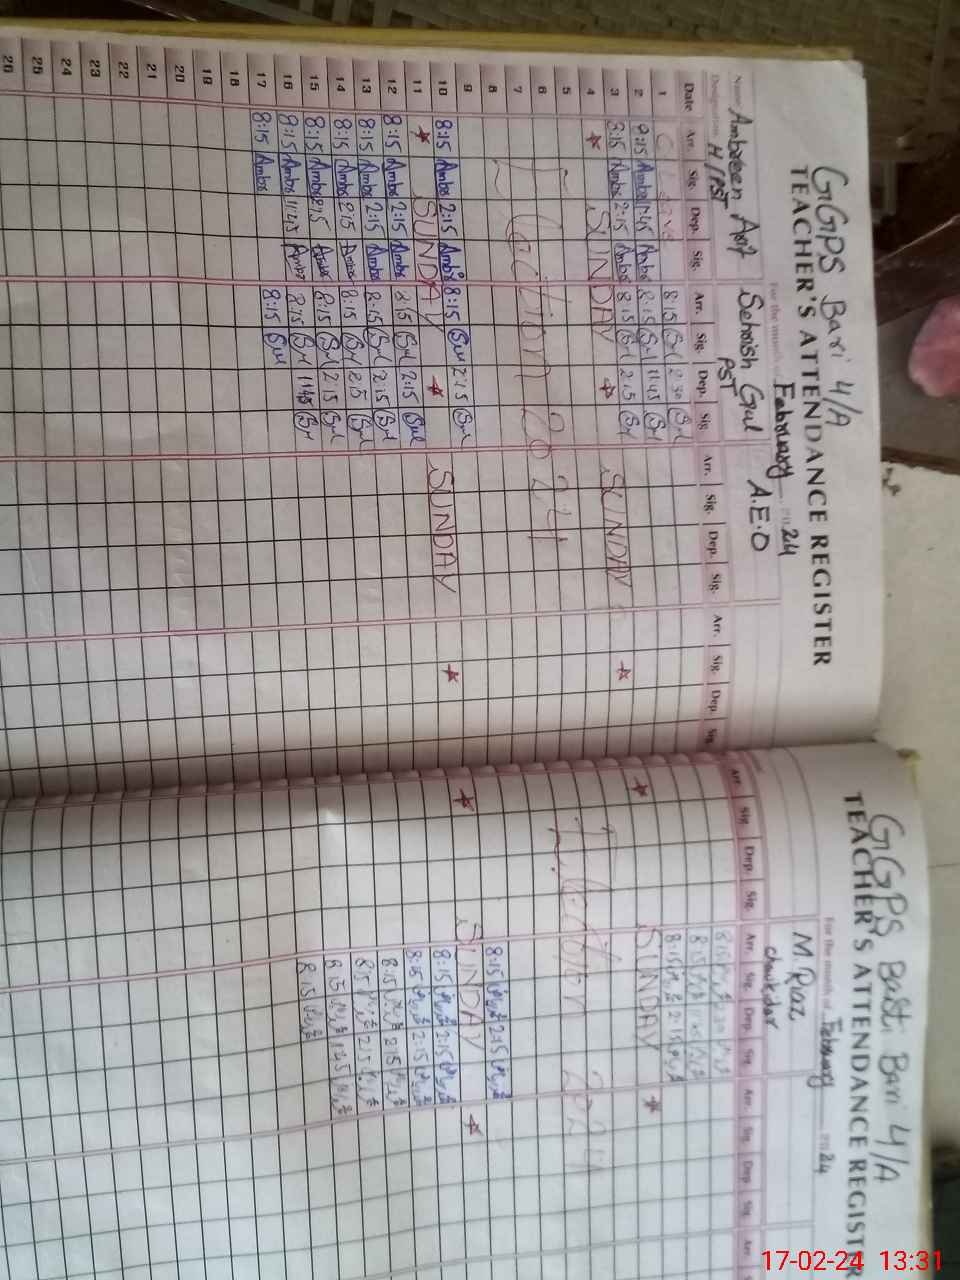 GGPS Bari 4/A
TEACHER'S ATTENDANCE REGISTER
For the month of February 2024
Name Ambreen Asf Sehrish Gul A.E.O
Designation H/PST PST
Date Arr. Sig. Dep. Sig. Arr. Sig. Dep. Sig. Arr. Sig. Dep. Sig. Arr. Sig. Dep. Sig.
1 8:15 2:30
2 8:15 Ambr 11:45 Ambr 8:15 11:45
3 8:15 Ambr 2:15 Ambr 8:15 2:15
4 SUNDAY SUNDAY
5
6 Election 2024
7
8
9
10 8:15 Ambr 2:15 Ambr 8:15 2:15
11 SUNDAY SUNDAY
12 8:15 Ambr 2:15 Ambr 8:15 2:15
13 8:15 Ambr 2:15 Ambr 8:15 2:15
14 8:15 Ambr 2:15 Ambr 8:15 2:15
15 8:15 Ambr 2:15 Ambr 8:15 2:15
16 8:15 Ambr 11:45 Ambr 8:15 11:45
17 8:15 Ambr 8:15
18
19
20
21
22
23
24
25
26
GGPS Basti Bari 4/A
TEACHER'S ATTENDANCE REGISTER
For the month of February 2024
M. Riaz
Chowkidar
Arr. Sig. Dep. Sig. Arr. Sig. Dep. Sig. Arr. Sig. Dep. Sig. Arr.
8:15
8:15 11:45
8:15 2:15
SUNDAY
Election 2024
8:15 2:15
SUNDAY
8:15 2:15
8:15 2:15
8:15 2:15
8:15 2:15
8:15 11:45
8:15
17-02-24 13:31